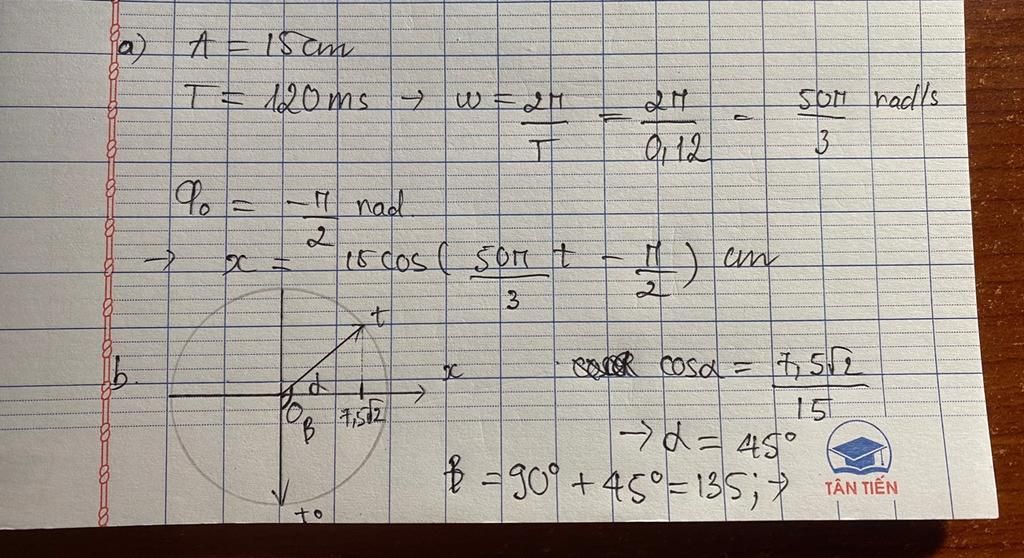 a) A = 15 cm
T = 120 ms → ω = 2π/T = 2π/0,12 = 50π/3 rad/s
φ₀ = -π/2 rad.
→ x = 15 cos( 50π/3 t - π/2 ) cm
b.
t
x
α
O
β
7,5√2
t₀
cosα = 7,5√2/15
→ α = 45°
β = 90° + 45° = 135; →
TÂN TIẾN